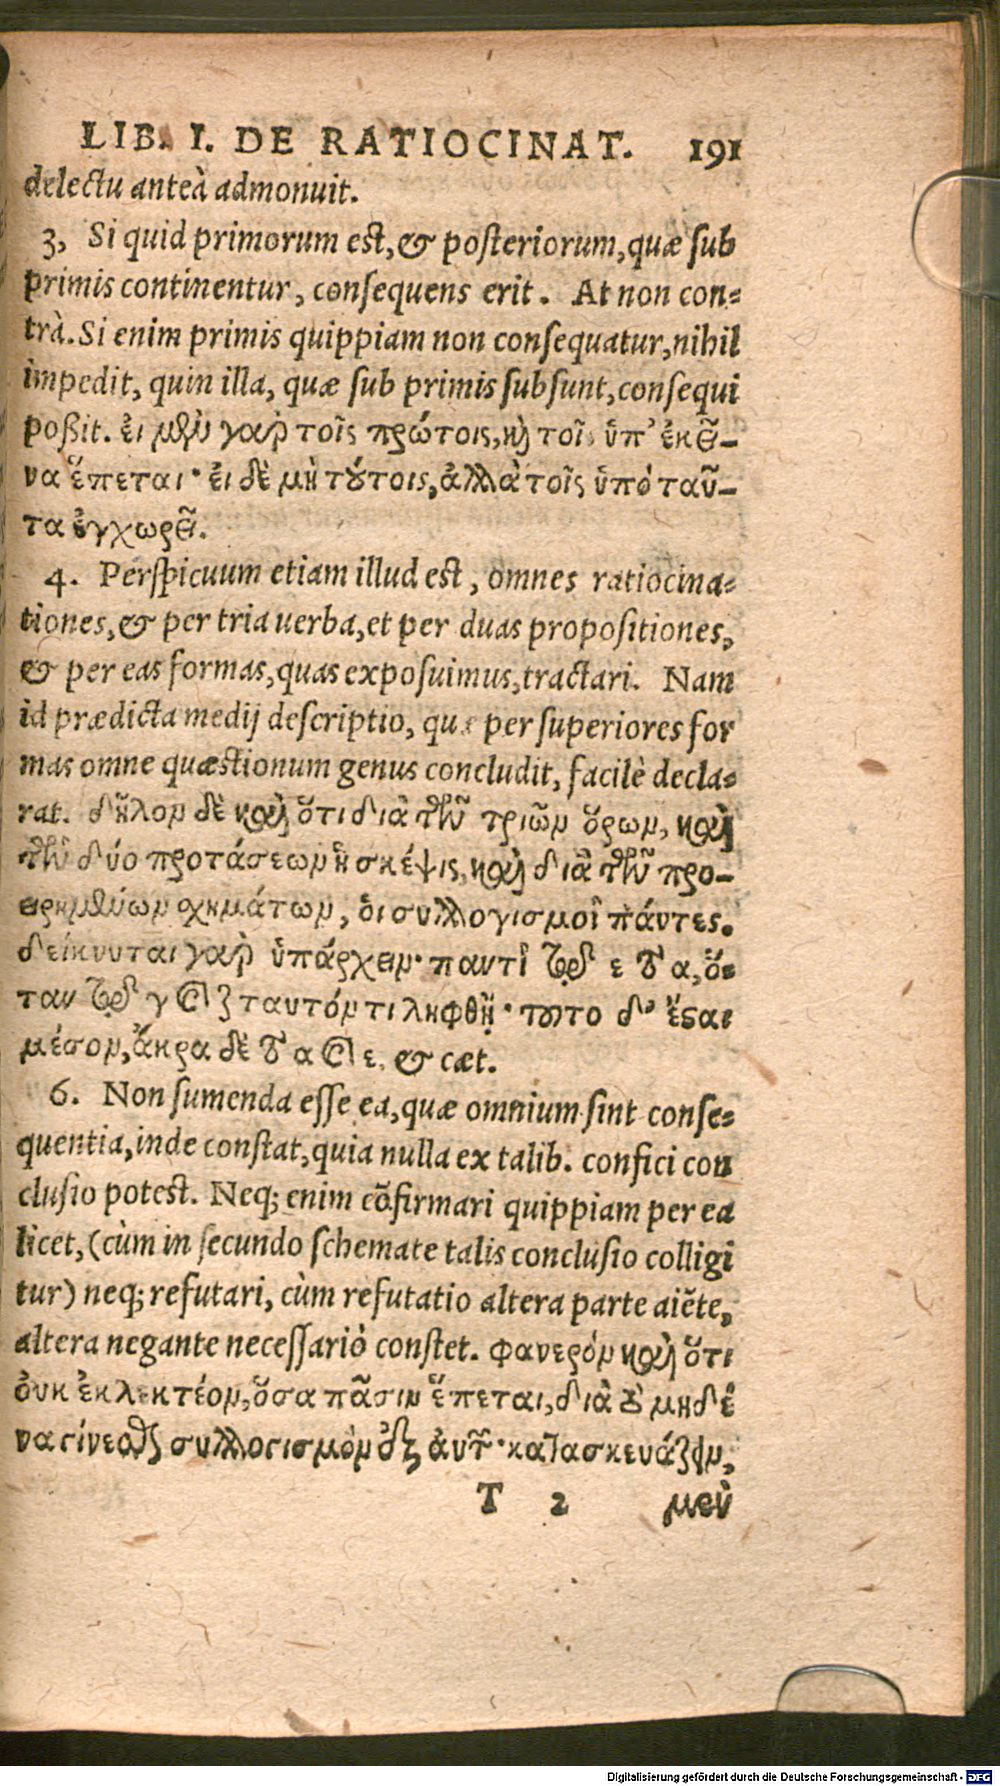 LIB. I. DE RATIOCINAT. 191
delectu anteà admonuit.
3, Si quid primorum est, & posteriorum, quæ sub
primis continentur, consequens erit. At non con=
trà. Si enim primis quippiam non consequatur, nihil
impedit, quin illa, quæ sub primis subsunt, consequi
poßit. ἐι μὲν γαρ τοῖς πρώτοις, καὶ τοῖς ὑπ' ἐκεῖ-
να ἕπεται· ἐι δὲ μὴ τούτοις, ἀλλὰ τοῖς ὑπὸ ταῦ-
τα ἐγχωρεῖ.
4. Perspicuum etiam illud est, omnes ratiocina=
tiones, & per tria uerba, et per duas propositiones,
& per eas formas, quas exposuimus, tractari. Nam
id prædicta medij descriptio, quæ per superiores for
mas omne quæstionum genus concludit, facilè decla=
rat. δῆλον δὲ καὶ ὅτι διὰ τῶν τριῶν ὅρων, καὶ
τῶν δύο προτάσεων ἡ σκέψις, καὶ διὰ τῶν προ-
ειρημένων σχημάτων, ὁι συλλογισμοὶ πάντες.
δείκνυται γαρ ὑπάρχειν· παντὶ ε τὸ α, ὅ=
ταν γ ταυτόν τι ληφθῇ· τοῦτο δ' ἔσαι
μέσον, ἄκρα δὲ τὸ α καὶ ε. & cæt.
6. Non sumenda esse ea, quæ omnium sint conse=
quentia, inde constat, quia nulla ex talib. confici con
clusio potest. Neq; enim cōfirmari quippiam per ea
licet, (cùm in secundo schemate talis conclusio colligi
tur) neq; refutari, cùm refutatio altera parte aiēte,
altera negante necessariò constet. φανερόν καὶ ὅτι
ὀυκ ἐκλεκτέον, ὅσα πᾶσιν ἕπεται, διὰ τὸ μηδέ
να γίνεσθαι συλλογισμὸν ἐξ ἀυτῶν· κατασκευάζειν,
T 2 μὲν
Digitalisierung gefördert durch die Deutsche Forschungsgemeinschaft - DFG